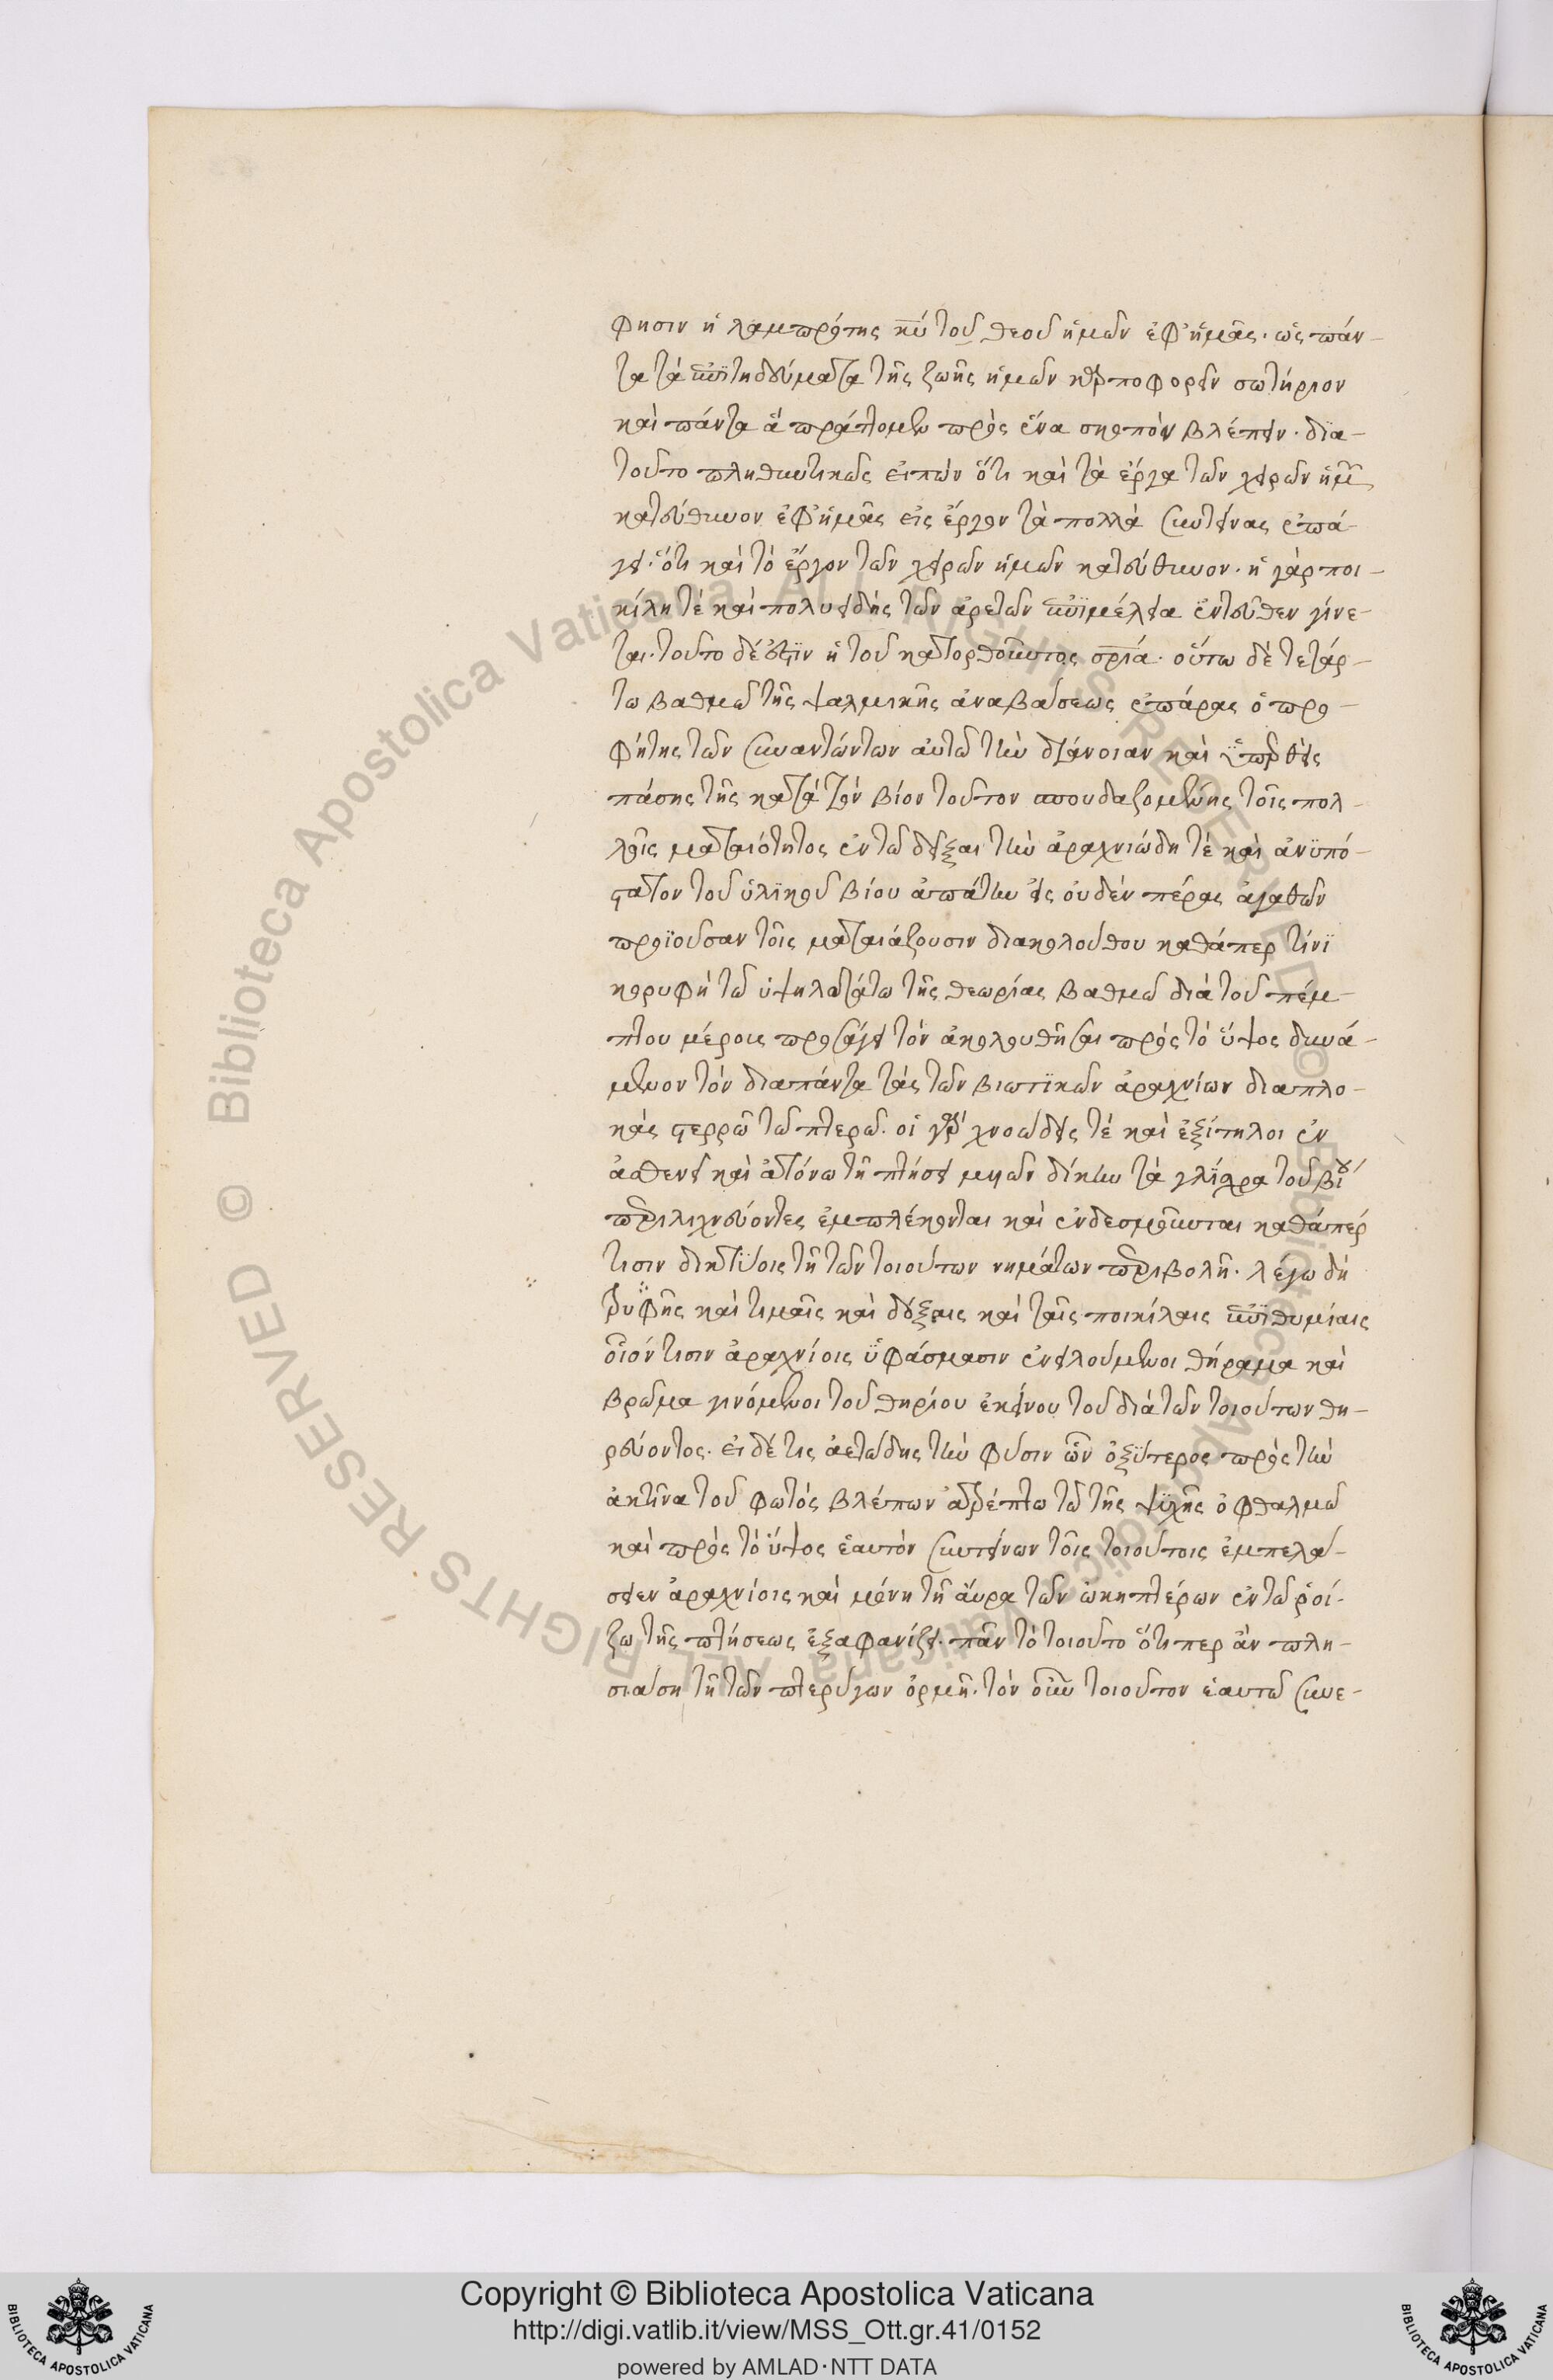 φησιν ἡ λαμπρότης κυ τοῦ θεοῦ ἡμῶν ἐφ' ἡμᾶς· ὡς πάν-
τα τὰ ἐπιτηδεύματα τῆς ζωῆς ἡμῶν καρποφορεῖν σωτήριον
καὶ πάντα ἃ πράττομεν πρὸς ἕνα σκοπὸν βλέπειν· δϊα-
τοῦτο πληθυντικῶς εἰπὼν ὅτι καὶ τὰ ἔργα τῶν χειρῶν ἡμ
κατεύθυνον ἐφ' ἡμᾶς εἰς ἔργον τὰ πολλὰ συντείνας ἐπά-
γει· ὅτι καὶ τὸ ἔργον τῶν χειρῶν ἡμῶν κατεύθυνον· ἡ γὰρ ποι-
κίλη τὲ καὶ πολυειδὴς τῶν ἀρετῶν ἐπϊμέλεια ἐντεῦθεν γίνε-
ται· τοῦτο δέ ἐστϊν ἡ τοῦ κατορθοῦντος σρία· οὕτω δὲ τετάρ-
τω βαθμῶ τῆς ψαλμικῆς ἀναβάσεως ἐπάρας ὁ προ-
φήτης τῶν συναντώντων αὐτῶ τὴν διάνοιαν καὶ
πάσης τῆς κατὰ τὸν βίον τοῦτον σπουδαζομένης τοῖς πολ-
λοῖς ματαιότητος ἐν τῶ δεῖξαι τὴν ἀραχνιώδη τὲ καὶ ἀνϋπό-
στατον τοῦ ὑλϊκοῦ βίου ἀπάτην εἰς οὐδὲν πέρας ἀγαθῶν
προϊοῦσαν τοῖς ματαιάζουσιν διακολούθου καθάπερ τίνϊ
κορυφὴ τῶ ὑψηλοτάτω τῆς θεωρίας βαθμῶ διὰ τοῦ πέμ-
πτου μέροις προσάγει τὸν ἀκολουθῆσαι πρὸς τὸ ὕψος δυνά-
μενον τὸν διαπάντα τὰς τῶν βιωτϊκῶν ἀραχνίων διαπλο-
κὰς στερρῶ τῶ πτερῶ· οἱ γὰρ χνοώδεις τὲ καὶ ἐξίτηλοι ἐν
ἀσθενεῖ καὶ ἀτόνω τῆ πτήσει μυιῶν δίκην τὰ γλϊσχρα τοῦ βίου
περιλιχνεύοντες ἐμπλέκονται καὶ ἐνδεσμοῦνται καθάπέρ
τισιν δικτΰοις τῆ τῶν τοιούτων νημάτων περιβολῆ· λέγω δὴ
τρυφῆς καὶ τιμαῖς καὶ δόξαις καὶ ταῖς ποικίλαις ἐπϊθυμίαις
οἷόν τισιν ἀραχνίοις ὑφάσμασιν ἐνειλούμενοι θήραμα καὶ
βρῶμα γινόμενοι τοῦ θηρίου ἐκείνου τοῦ διὰ τῶν τοιούτων θη-
ρεύοντος· εἰ δέ τις ἀετώδης τὴν φύσιν ὢν ὀξΰτερος πρὸς τὴν
ἀκτῖνα τοῦ φωτὸς βλέπων ἀτρέπτω τῶ τῆς ψϋχῆς ὀφθαλμῶ
καὶ πρὸς τὸ ὕψος ἑαυτὸν συντείνων τοῖς τοιούτοις ἐμπελά-
σειεν ἀραχνίοις καὶ μόνη τῆ αὔρα τῶν ὠκυπτέρων ἐν τῶ ῥοί-
ζω τῆς πτήσεως ἐξαφανίζει· πᾶν τὸ τοιοῦτο ὅτιπερ ἂν πλη-
σιάση τῆ τῶν πτερύγων ὁρμῆ· τὸν οὖν τοιοῦτον ἑαυτῶ συνε-
Copyright © Biblioteca Apostolica Vaticana
http://digi.vatlib.it/view/MSS_Ott.gr.41/0152
powered by AMLAD·NTT DATA
BIBLIOTECA APOSTOLICA VATICANA
BIBLIOTECA APOSTOLICA VATICANA
© Biblioteca Apostolica Vaticana ALL RIGHTS RESERVED
© Biblioteca Apostolica Vaticana ALL RIGHTS RESERVED